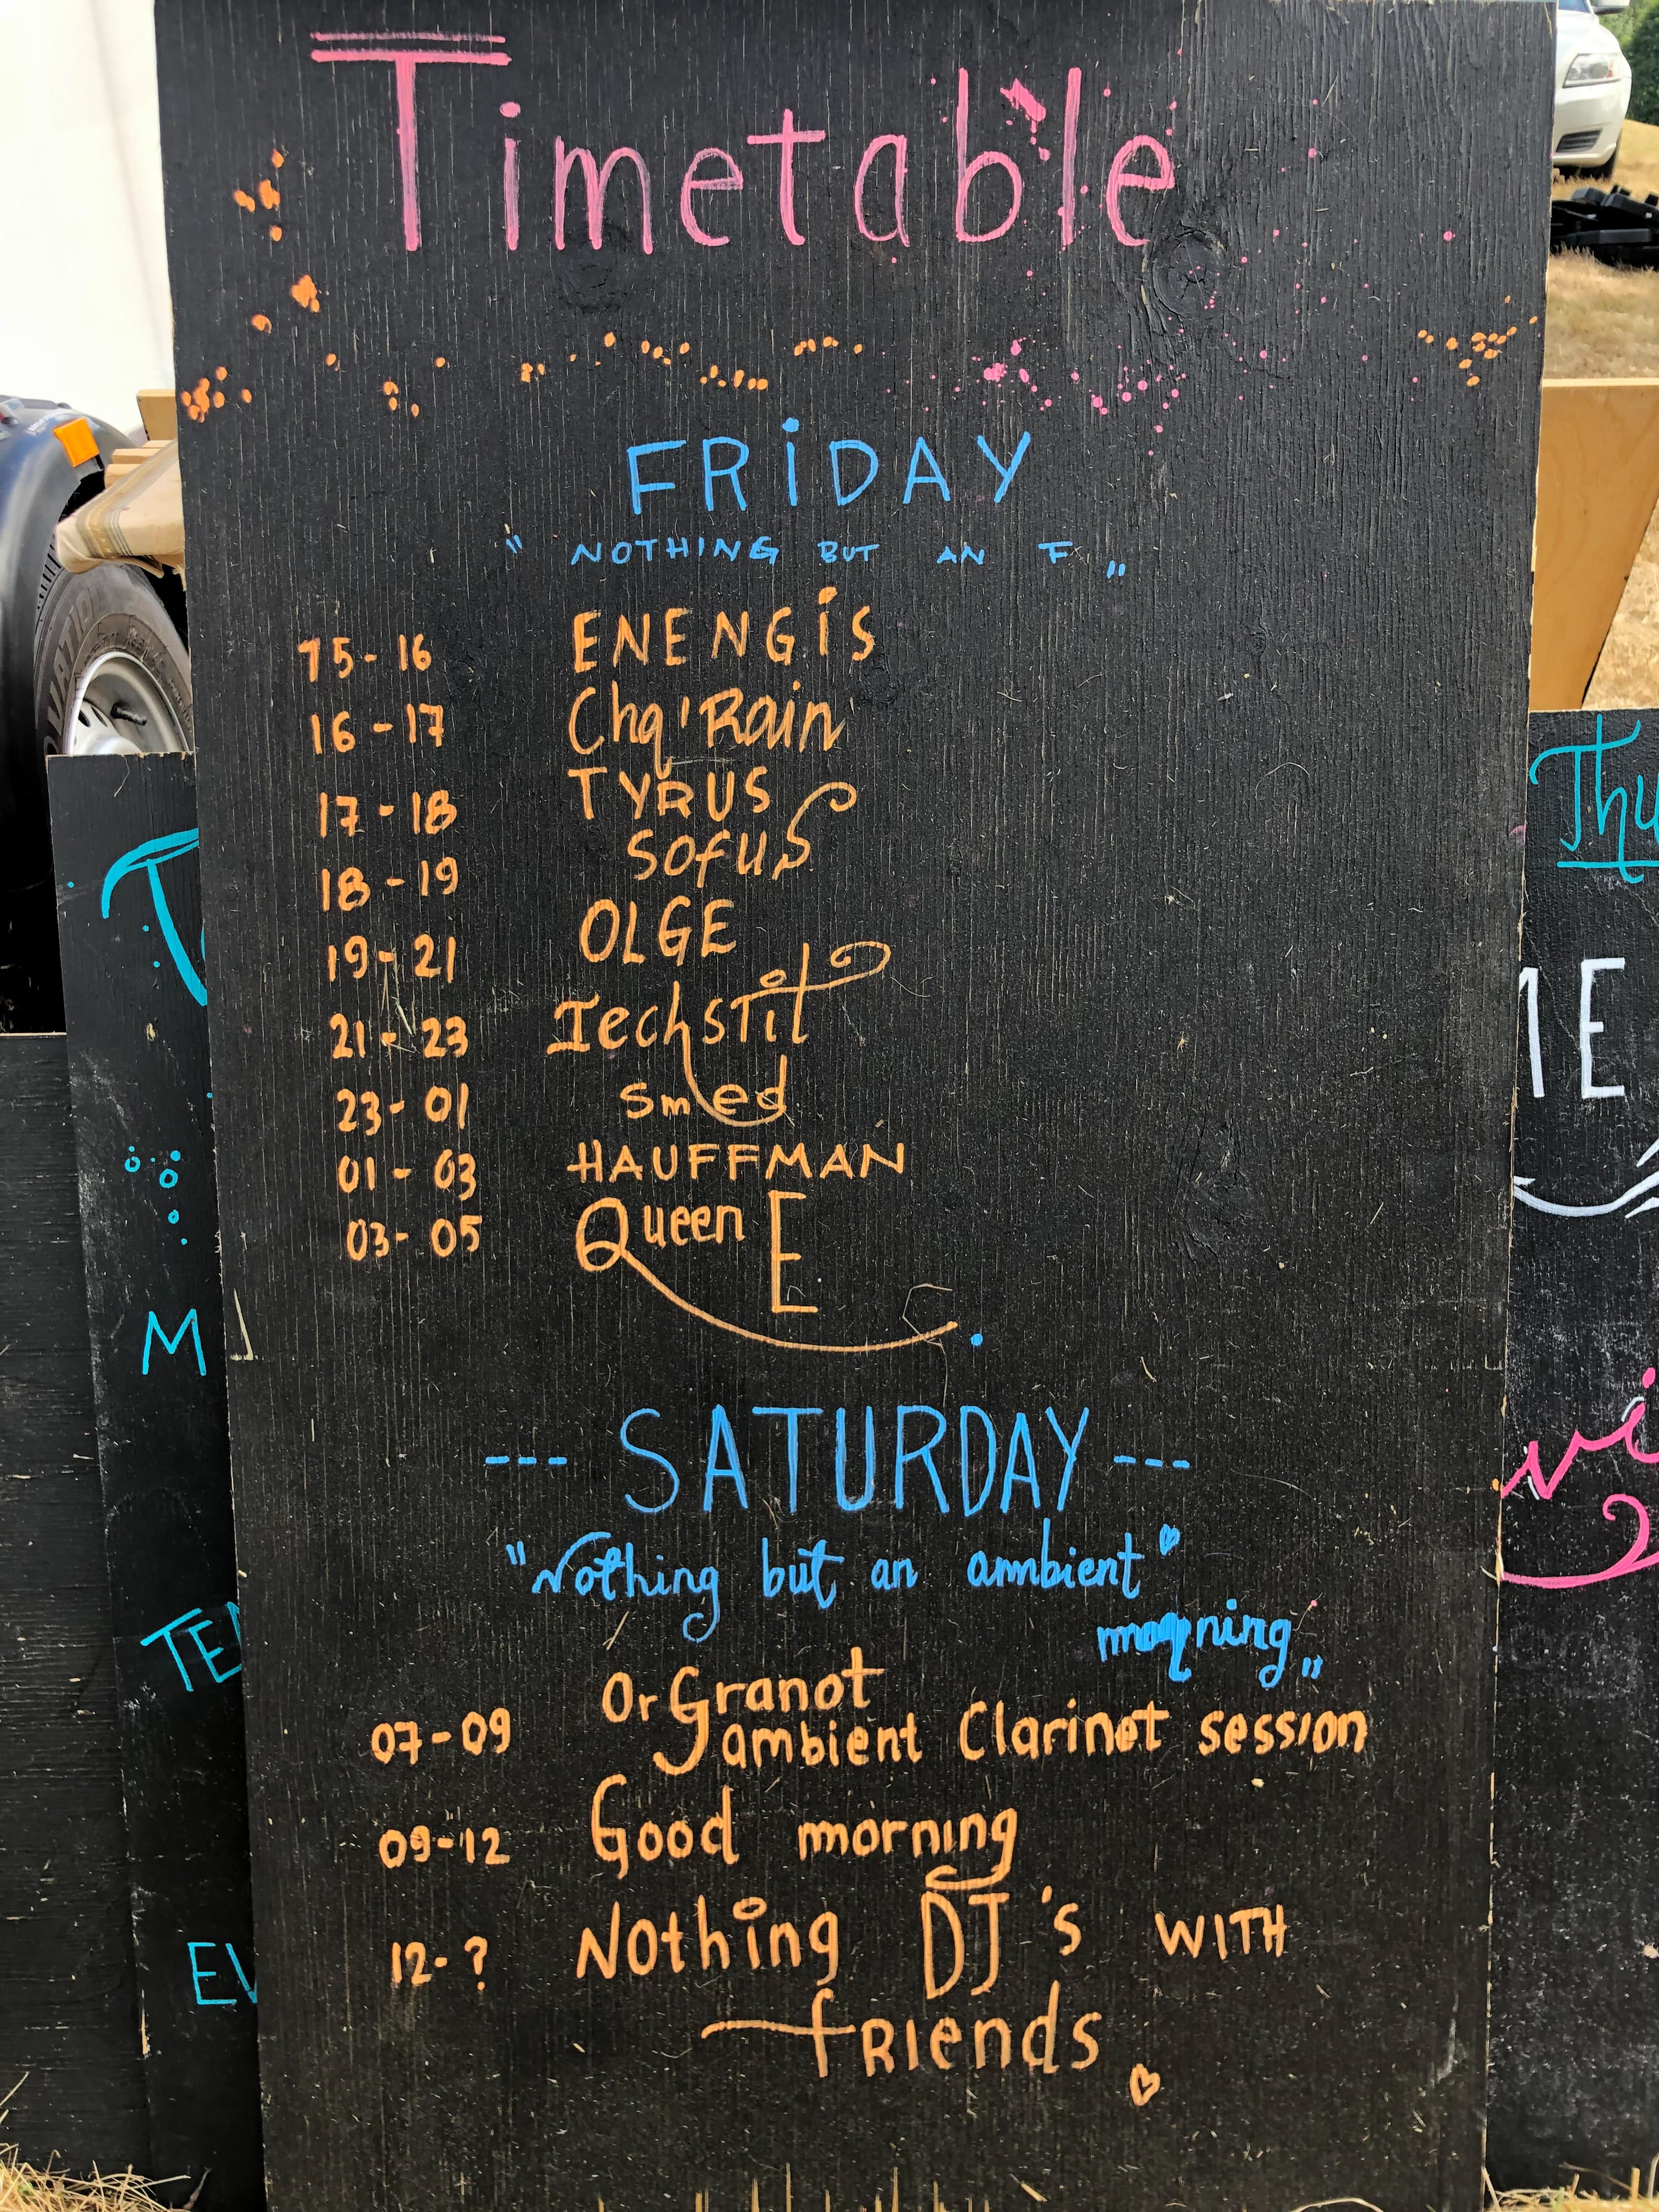 Timetable
FRIDAY
" NOTHING BUT AN F "
15-16 ENENGIS
16-17 Cha'Rain
17-18 TYRUS
18-19 Sofus
19-21 OLGE
21-23 Techstit
23-01 Smed
01-03 HAUFFMAN
03-05 Queen E
--- SATURDAY ---
"Nothing but an ambient
morning"
Or Granot
07-09 ambient Clarinet session
09-12 Good morning
12-? Nothing DJ's WITH
friends
Thu
ME
M
TE
EV